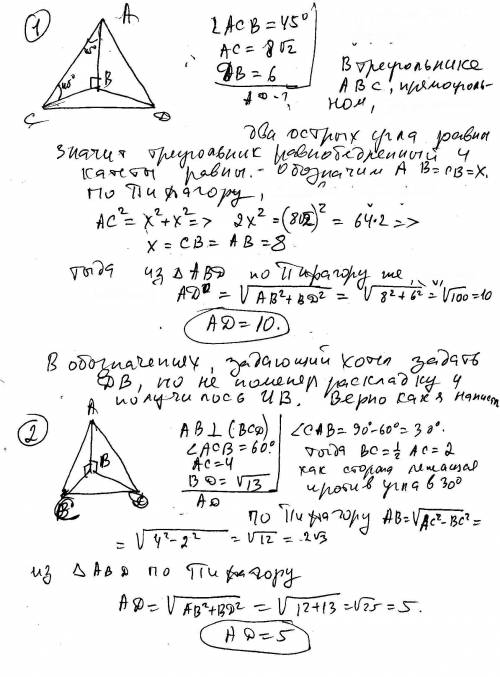 1
A
45°
45°
B
C
D
∠ACB = 45°
AC = 8√2
DB = 6
AD - ?
В треугольнике
ABC, прямоуголь-
ном,
два острых угла равны
Значит треугольник равнобедренный и
катеты равны. Обозначим AB = CB = X.
По Пифагору,
AC² = x² + x² => 2x² = (8√2)² = 64·2 =>
x = CB = AB = 8
тогда из △ABD по Пифагору же,
AD = √AB² + BD² = √8² + 6² = √100 = 10
AD = 10.
В обозначениях, задающий хотел задать
DB, но не поменял раскладку и
получилось ИВ. Верно как я написал
2
A
B
AB ⊥ (BCD)
∠ACB = 60°
AC = 4
BD = √13
AD
∠CAB = 90° - 60° = 30°.
тогда BC = ½ AC = 2
как сторона лежащая
против угла в 30°
по Пифагору AB = √AC² - BC² =
= √4² - 2² = √12 = 2√3
из △ABD по Пифагору
AD = √AB² + BD² = √12 + 13 = √25 = 5.
AD = 5